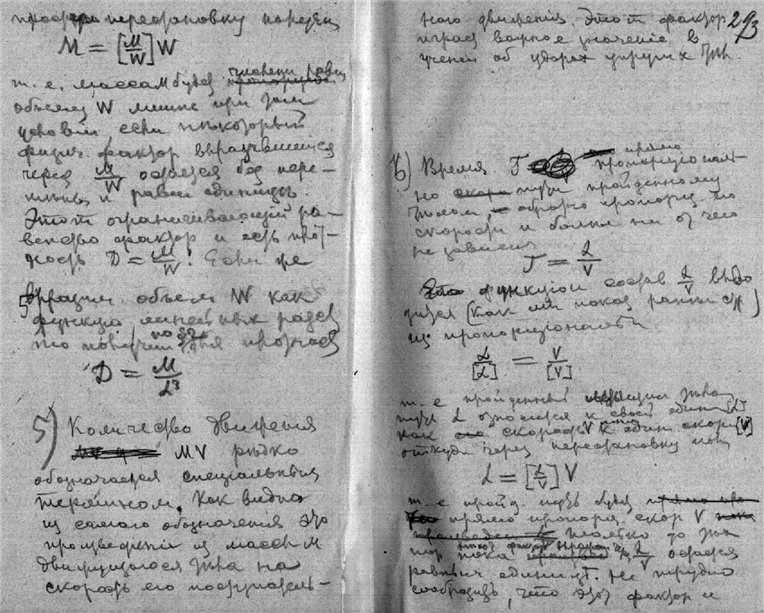 перестановку
M = [M/W] W
т. е. масса M будет численно равна
объему W лишь при том
условии, если некоторый
физич. фактор выражающийся
через M/W остается без пере-
мены и равен единице.
Этот ограничивающий ра-
венство фактор и есть плот-
ность D = M/W! Если же
выразим объем W как
функцию линейных
то получим
D = M/L³
5) Количество движения
MV редко
обозначается специальным
термином. Как видно
из самого обозначения это
произведение из массы M
движущегося тела на
скорость его поступатель-
293
ного движения Этот фактор
играет важное значение в
учении об ударах упругих тел.
6) Время T прямо
пропорциональ-
но пути пройденному
телом, обратно пропорц. его
скорости и более ни от чего
не зависит
T = L/V
функции L/V
(как мы показ. ранее)
из пропорциональн
L/[L] = V/[V]
т. е пройденный тела
путь L относится к своей един. [L]
как скорость V к един скор [V]
откуда через перестановку
L = [L/V] V
т. е. пройд. путь будет
прямо пропорц. скор V
только до тех
пор пока L/V остается
равным единице. Не трудно
сообразить, что этот фактор и